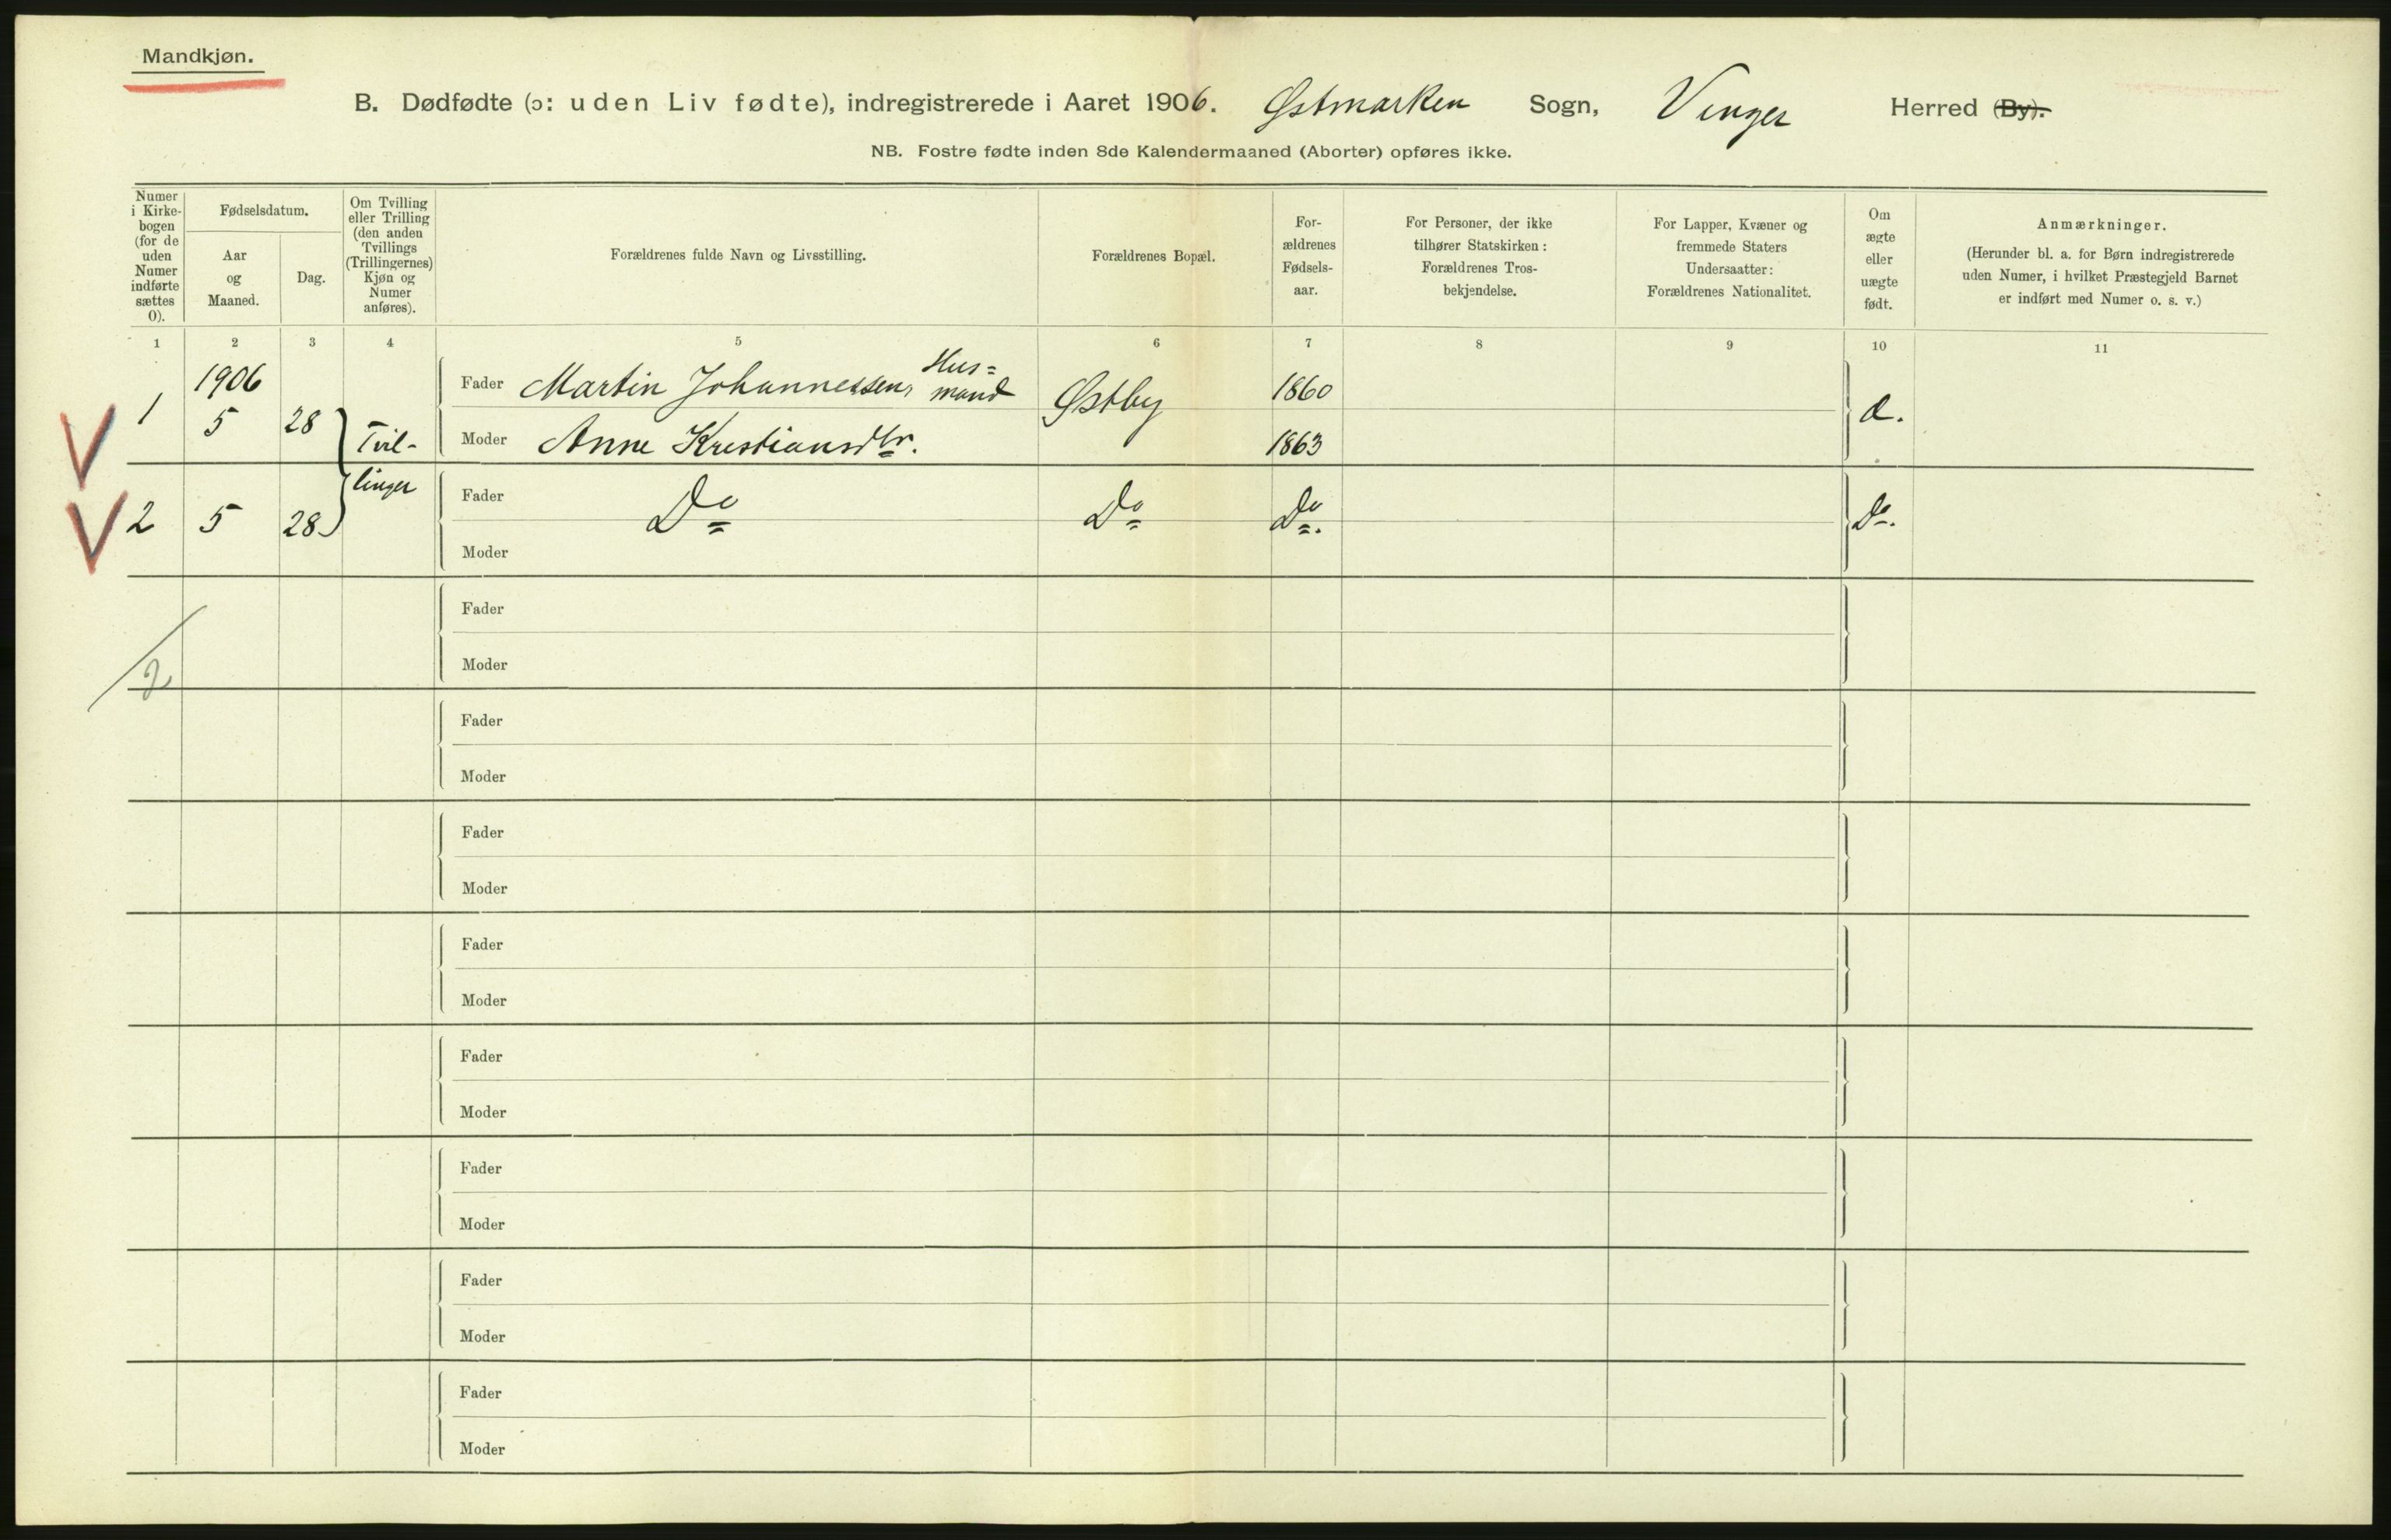 Mandkjøn.
B. Dødfødte (ɔ: uden Liv fødte), indregistrerede i Aaret 1906. Østmarken Sogn, Vinger Herred (By).
NB. Fostre fødte inden 8de Kalendermaaned (Aborter) opføres ikke.
Numer
i Kirke-
bogen
(for de
uden
Numer
indførte
sættes
0).
Fødselsdatum.
Aar
og
Maaned.
Dag.
Om Tvilling
eller Trilling
(den anden
Tvillings
(Trillingernes)
Kjøn og
Numer
anføres).
Forældrenes fulde Navn og Livsstilling.
Forældrenes Bopæl.
For-
ældrenes
Fødsels-
aar.
For Personer, der ikke
tilhører Statskirken:
Forældrenes Tros-
bekjendelse.
For Lapper, Kvæner og
fremmede Staters
Undersaatter:
Forældrenes Nationalitet.
Om
ægte
eller
uægte
født.
Anmærkninger.
(Herunder bl. a. for Børn indregistrerede
uden Numer, i hvilket Præstegjeld Barnet
er indført med Numer o. s. v.)
1 2 3 4 5 6 7 8 9 10 11
1906
Fader Martin Johannessen, Hus=
mand Østby 1860
1 5 28 Tvil-
Moder Anne Kristiansdtr. 1863
linger
2 5 28 Fader Do Do Do. Do.
Moder
2
Fader
Moder
Fader
Moder
Fader
Moder
Fader
Moder
Fader
Moder
Fader
Moder
Fader
Moder
Fader
Moder